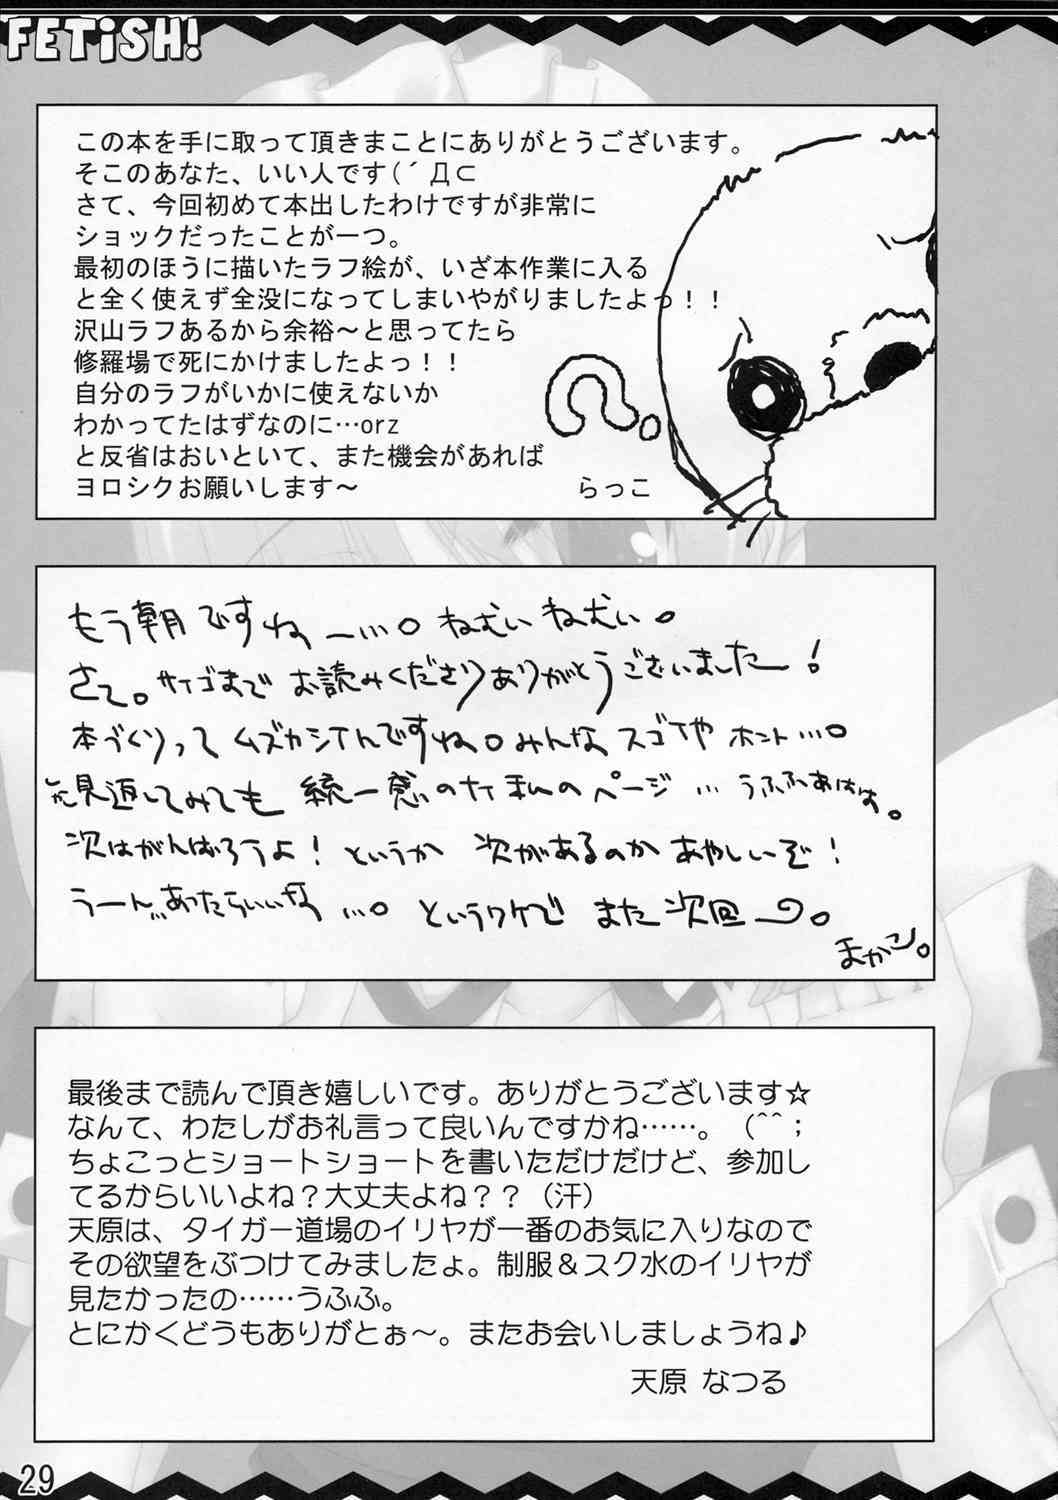 FETiSH!
この本を手に取って頂きまことにありがとうございます。
そこのあなた、いい人です(´Д⊂
さて、今回初めて本出したわけですが非常に
ショックだったことが一つ。
最初のほうに描いたラフ絵が、いざ本作業に入る
と全く使えず全没になってしまいやがりましたよっ！！
沢山ラフあるから余裕～と思ってたら
修羅場で死にかけましたよっ！！
自分のラフがいかに使えないか
わかってたはずなのに…orz
と反省はおいといて、また機会があれば
ヨロシクお願いします～
らっこ
もう朝ですねー…。ねむいねむい。
さて。サイゴまでお読みくださりありがとうございましたー！
本づくりってムズカシイんですね。みんなスゴイやホント…。
見返してみても統一感のナイ私のページ…うふふあはは。
次はがんばろうよ！というか次があるのかあやしいぞ！
うーん…あったらいいな…。というワケでまた次回。
まかこ。
最後まで読んで頂き嬉しいです。ありがとうございます☆
なんて、わたしがお礼言って良いんですかね……。（^^；
ちょこっとショートショートを書いただけだけど、参加し
てるからいいよね？大丈夫よね？？（汗）
天原は、タイガー道場のイリヤが一番のお気に入りなので
その欲望をぶつけてみましたょ。制服＆スク水のイリヤが
見たかったの……うふふ。
とにかくどうもありがとぉ～。またお会いしましょうね♪
天原 なつる
29